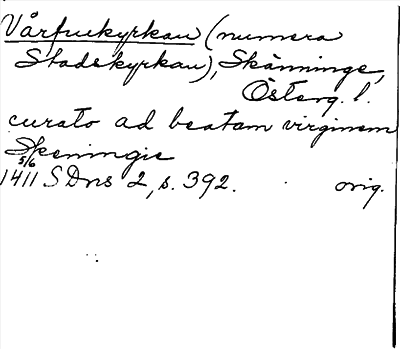 Vårfrukyrkan (numera
Stadskyrkan), Skänninge,
Österg. l.
curato ad beatam virginem
Skeningie
5/6
1411 SDns 2, s. 392. orig.